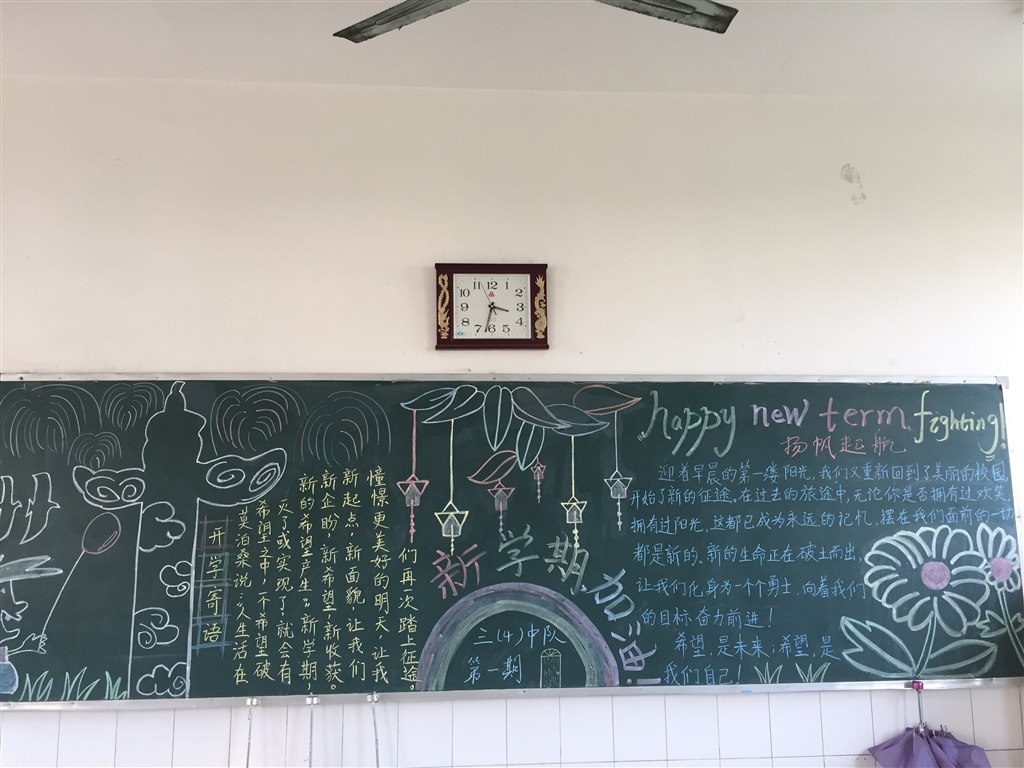 11 12 1
10 2
9 3
8 4
7 6 5
开学寄语
莫泊桑说:“人生活在
希望之中,一个希望破
灭了或实现了,就会有
新的希望产生。”新学期,
新企盼,新希望,新收获。
新起点,新面貌,让我们
憧憬更美好的明天,让我
们再次踏上征途。
新学期,加油
三(4)中队
第一期
happy new term, fighting!
扬帆起航
迎着早晨的第一缕阳光,我们又重新回到了美丽的校园,
开始了新的征途。在过去的旅途中,无论你是否拥有过欢笑
拥有过阳光,这都已成为永远的记忆,摆在我们面前的一切
都是新的。新的生命正在破土而出,
让我们化身为一个个勇士,向着我们
的目标奋力前进!
希望,是未来;希望,是
我们自己!